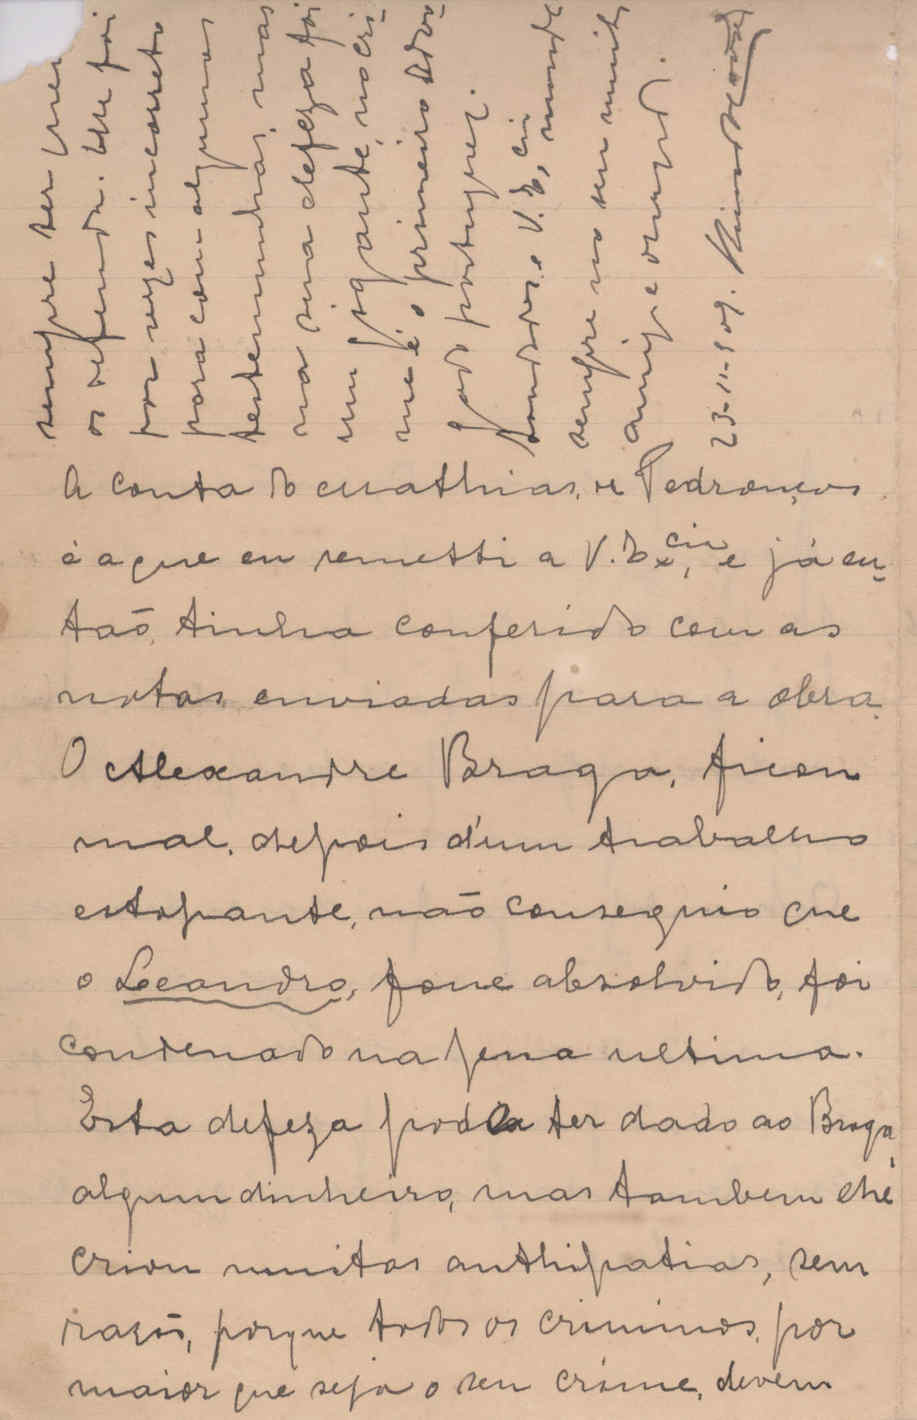 A conta do Mathias, e Pedrouços
é a que eu remetti a V. Excia, e já en-
taõ, tinha conferido com as
notas, enviadas para a obra.
O Alexandre Braga, ficou
mal, depois d'um trabalho
estopante, não conseguio que
o Leandro, fosse absolvido, foi
condenado na pena ultima.
Esta defeza poda ter dado ao Braga,
algum dinheiro, mas tambem lhe
criou muitas anthipatias, sem
rasão, porque todos os criminosos, por
maior que seja o seu crime, devem
sempre ter quem
os defenda. Elle foi
por vezes incorreto
para com algumas
testemunhas, mas
na sua defeza foi
um gigante, no cri-
me é o primeiro advo-
gado portuguez.
Saudados e V. Excia, mande
sempre no seu muito
amigo e obrigado.
23-11-909.